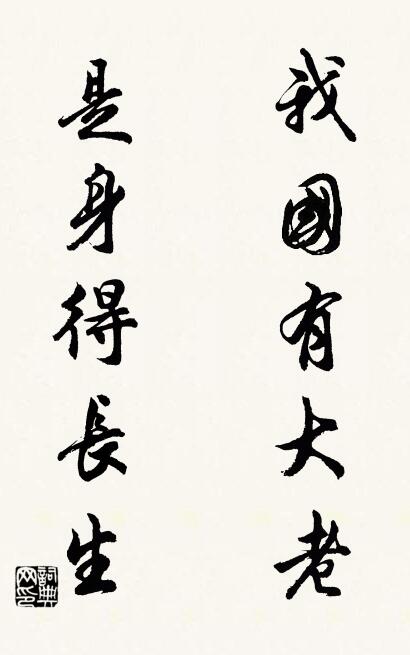 我國有大老
是身得長生
詞典网印